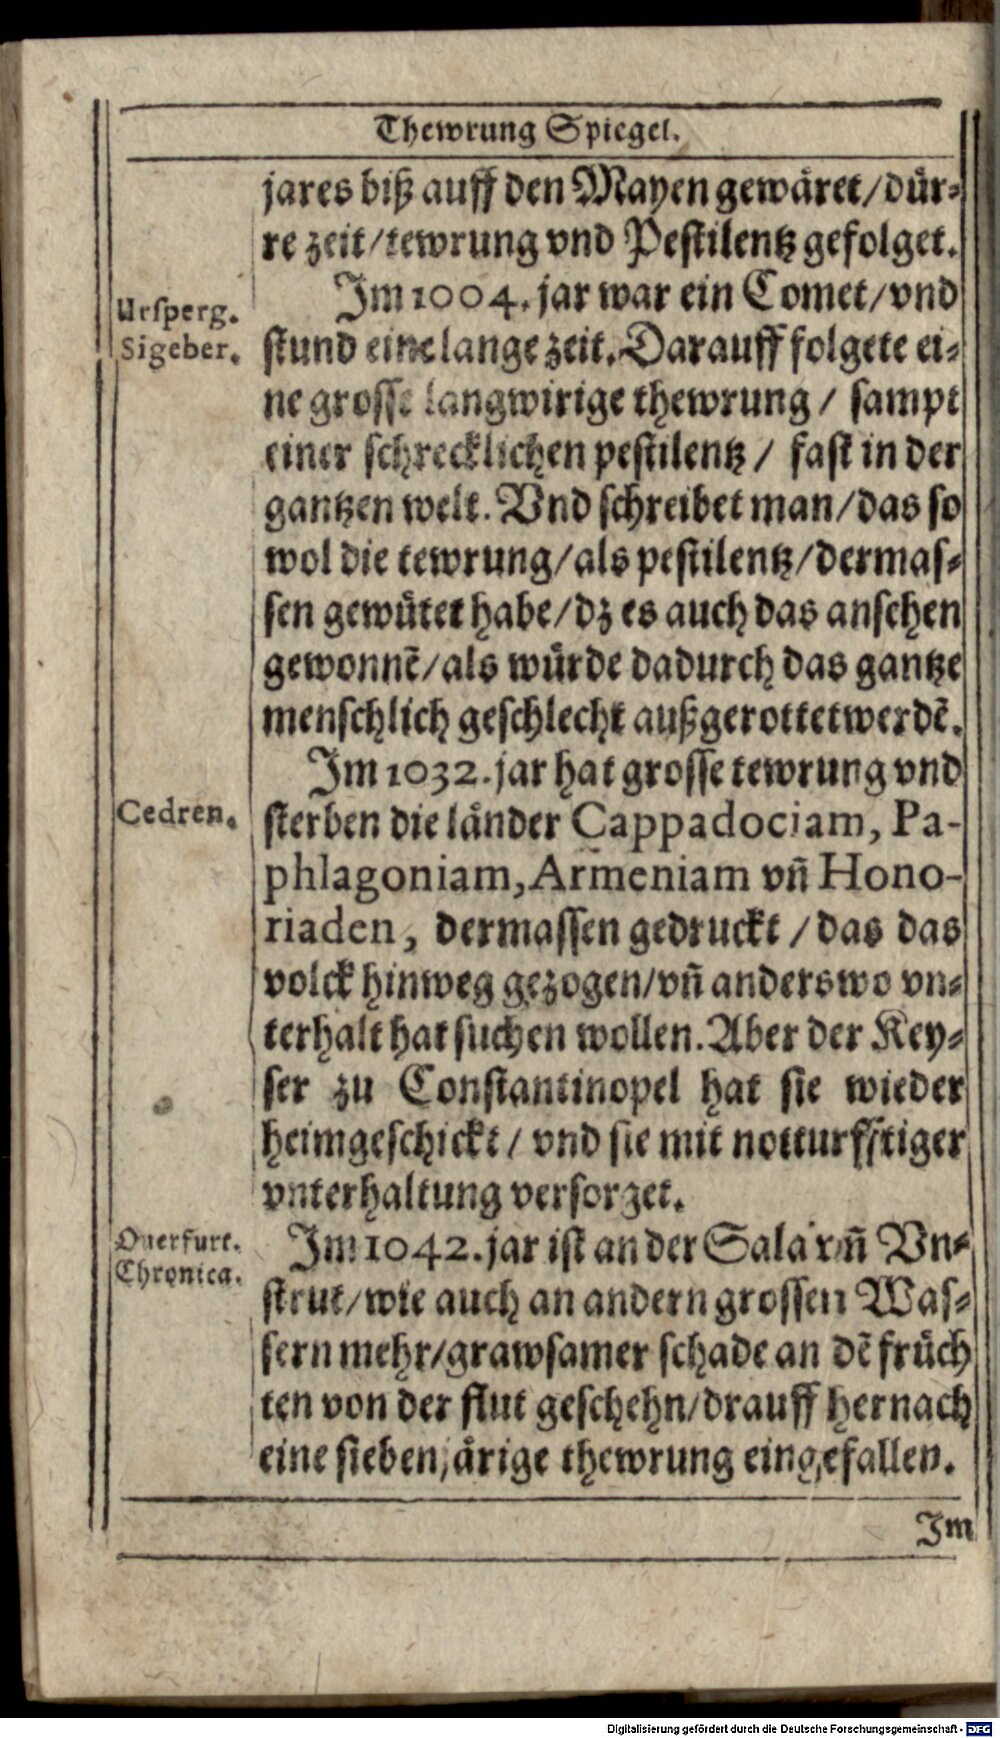 Thewrung Spiegel.
jares biß auff den Mayen gewäret/dür-
re zeit/tewrung vnd Pestilentz gefolget.
Im 1004. jar war ein Comet/vnd
Ursperg.
Sigeber.
stund eine lange zeit. Darauff folgete ei-
ne grosse langwirige thewrung / sampt
einer schrecklichen pestilentz / fast in der
gantzen welt. Vnd schreibet man/das so
wol die tewrung/als pestilentz/dermas-
sen gewütet habe/dz es auch das ansehen
gewonnẽ/als würde dadurch das gantze
menschlich geschlecht außgerottet werdẽ.
Im 1032. jar hat grosse tewrung vnd
Cedren.
sterben die länder Cappadociam, Pa-
phlagoniam, Armeniam vñ Hono-
riaden, dermassen gedruckt / das das
volck hinweg gezogen/vñ anderswo vn-
terhalt hat suchen wollen. Aber der Key-
ser zu Constantinopel hat sie wieder
heimgeschickt / vnd sie mit notturfftiger
vnterhaltung versorget.
Querfurt.
Chronica.
Im 1042. jar ist an der Sala vñ Vn-
strut/wie auch an andern grossen Was-
sern mehr/grawsamer schade an dẽ früch
ten von der flut geschehn/drauff hernach
eine siebenjärige thewrung eingefallen.
Im
Digitalisierung gefördert durch die Deutsche Forschungsgemeinschaft - DFG